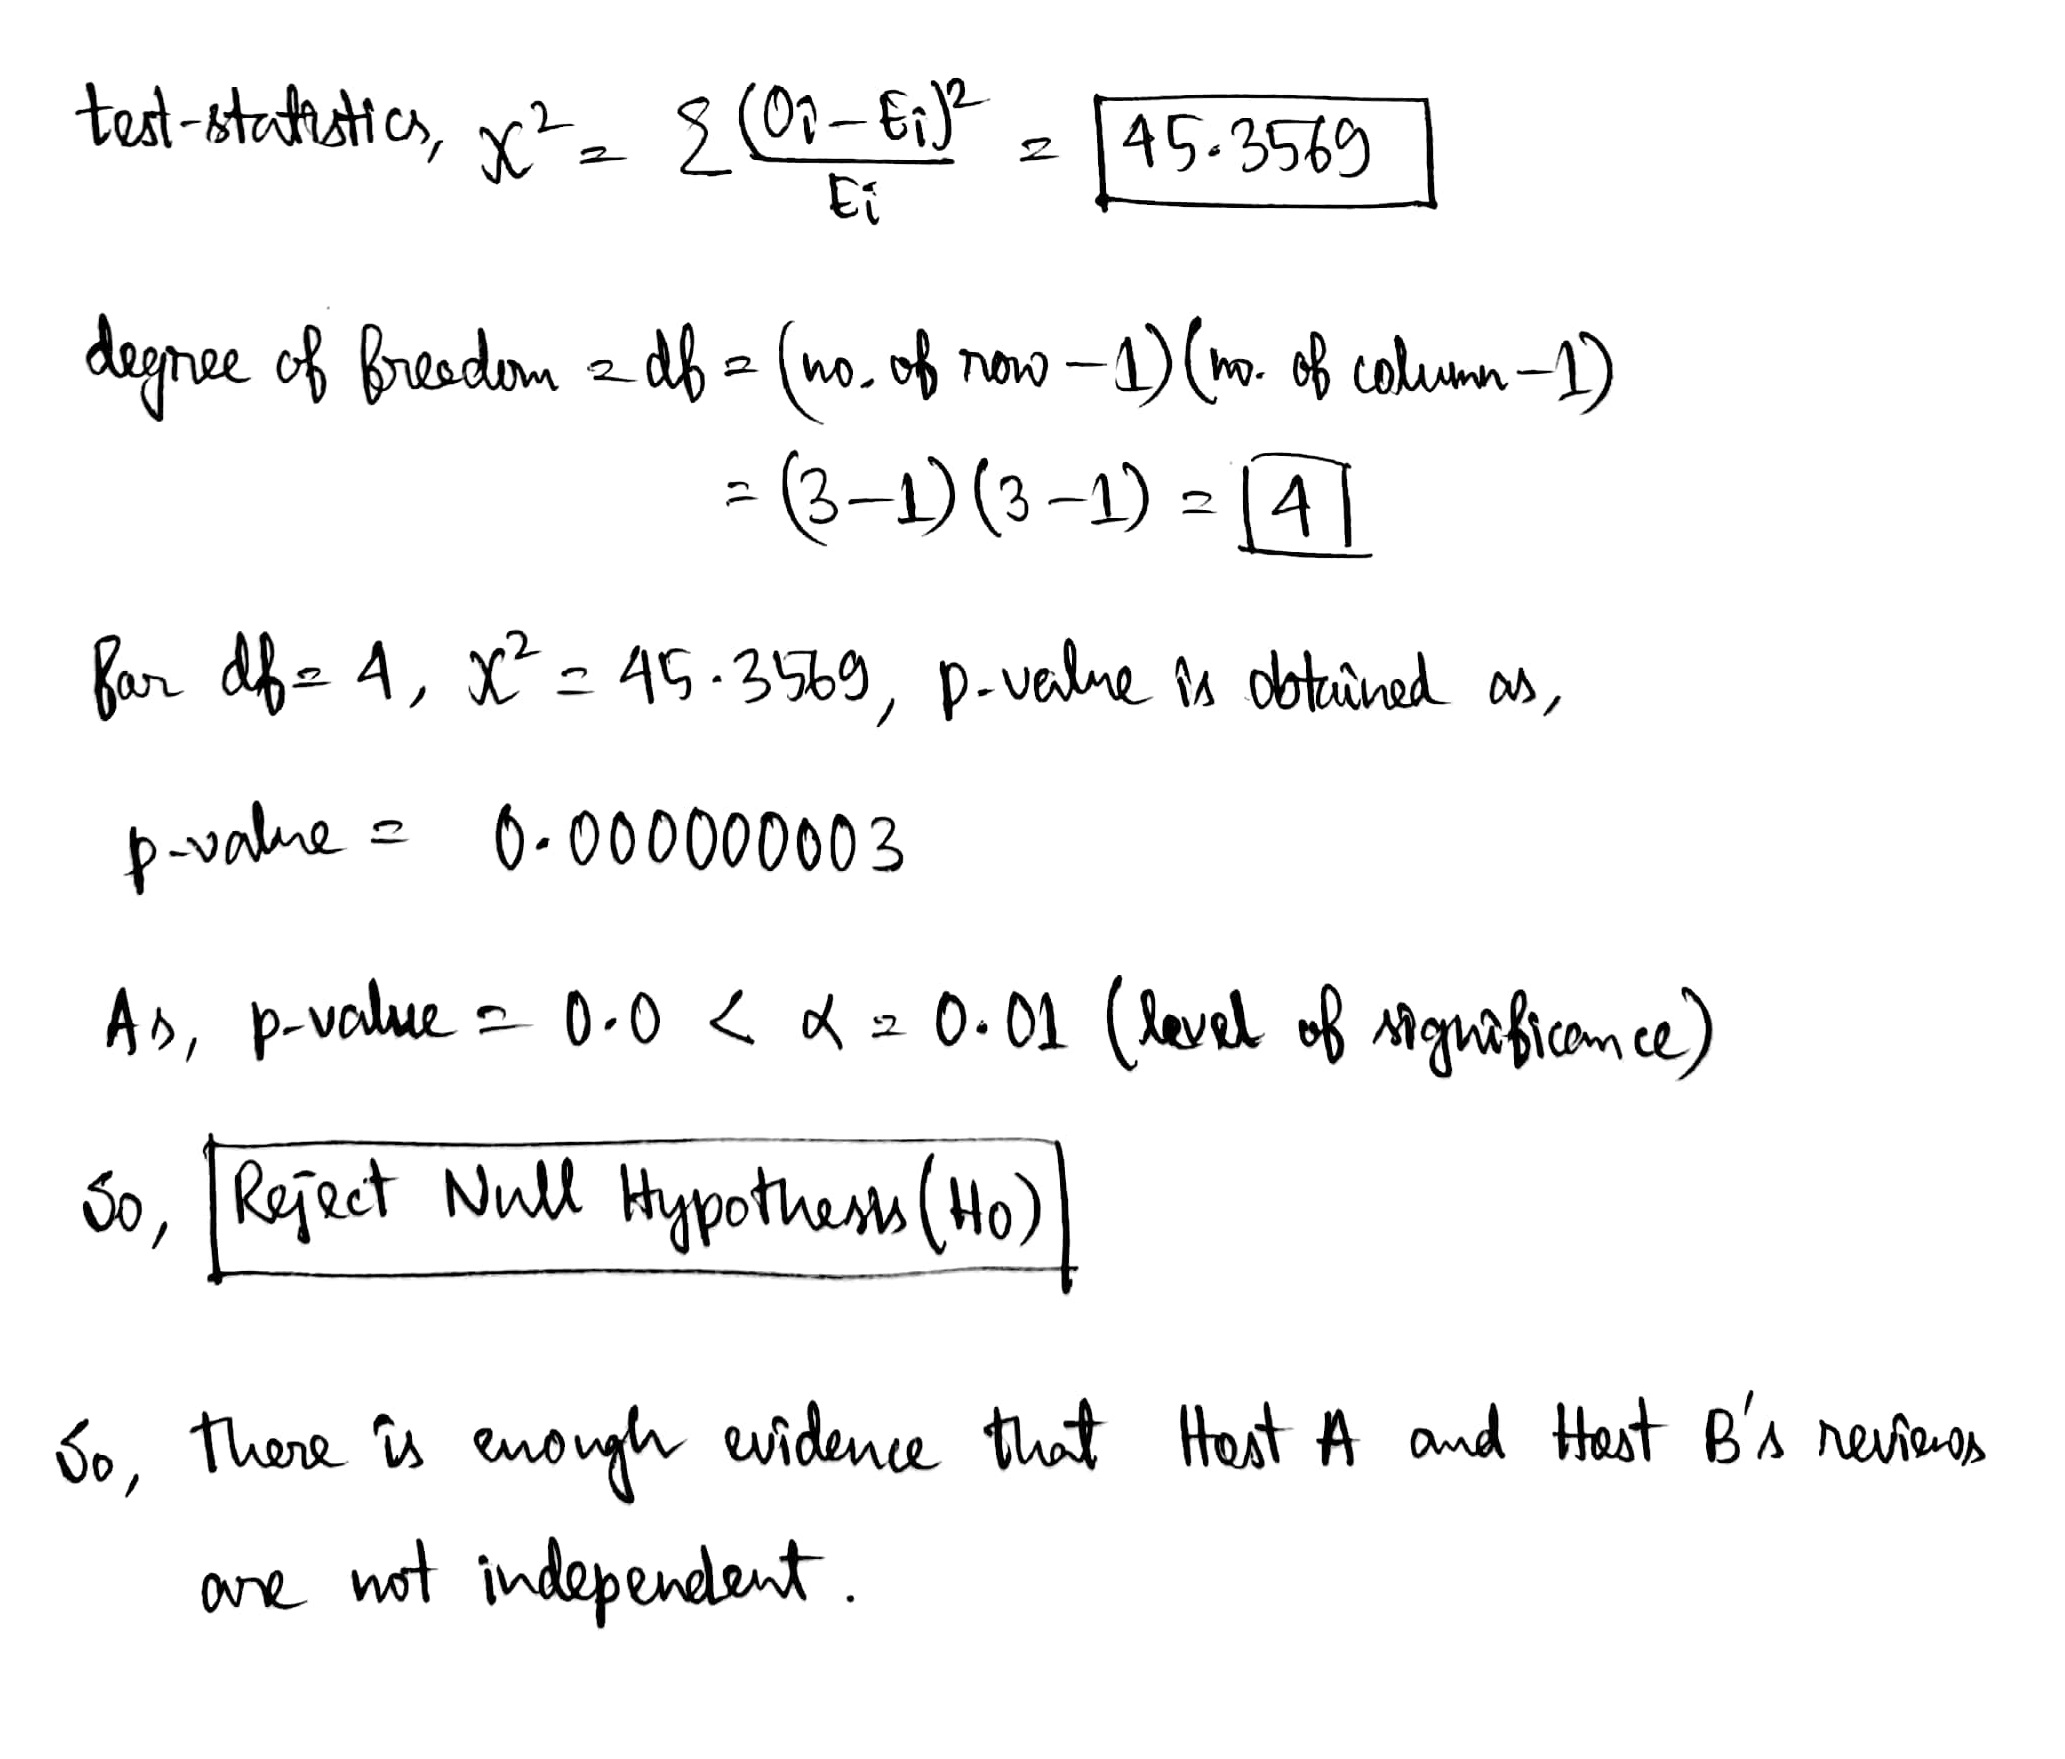 test-statistics, χ² = Σ (Oi - Ei)² / Ei = 45.3569
degree of freedom = df = (no. of row - 1) (no. of column - 1)
= (3-1) (3-1) = 4
for df = 4, χ² = 45.3569, p-value is obtained as,
p-value = 0.000000003
As, p-value = 0.0 < α = 0.01 (level of significance)
So, Reject Null Hypothesis (H0)
So, there is enough evidence that Host A and Host B's reviews
are not independent.